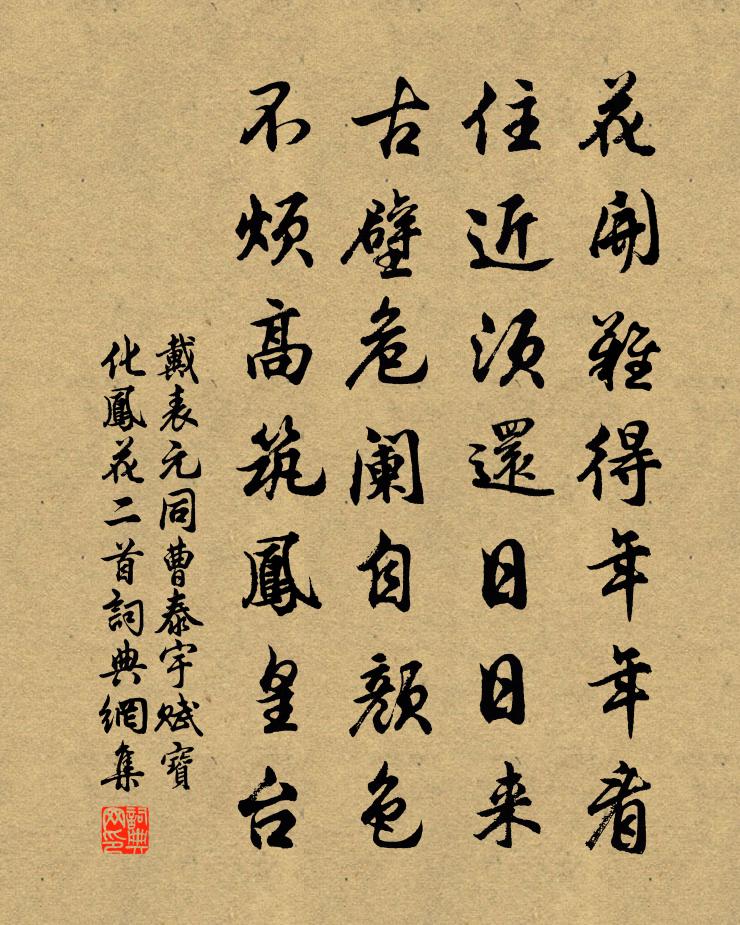 花開難得年年看
住近須還日日来
古壁危阑自顏色
不煩高筑鳳皇台
戴表元同曹泰宇赋寶
化鳳花二首詞典網集
詞典网印